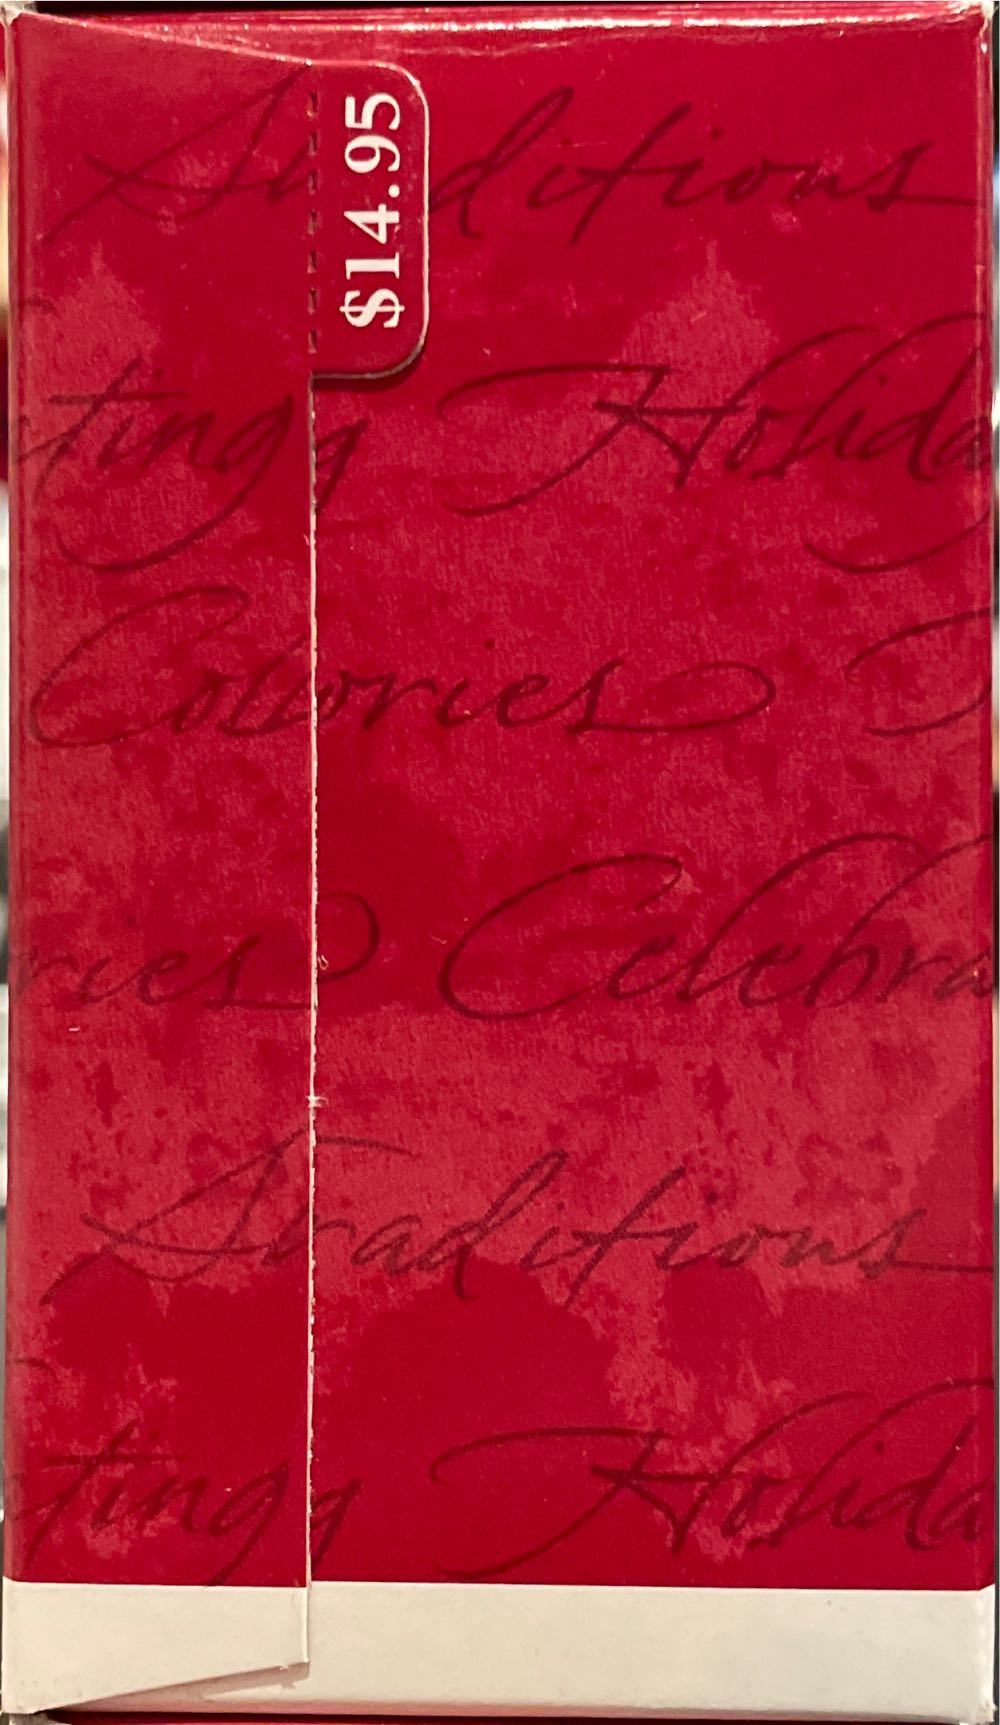 $14.95
Traditions
ting Holida
Colories
ries Celebra
Traditions
ting Holida